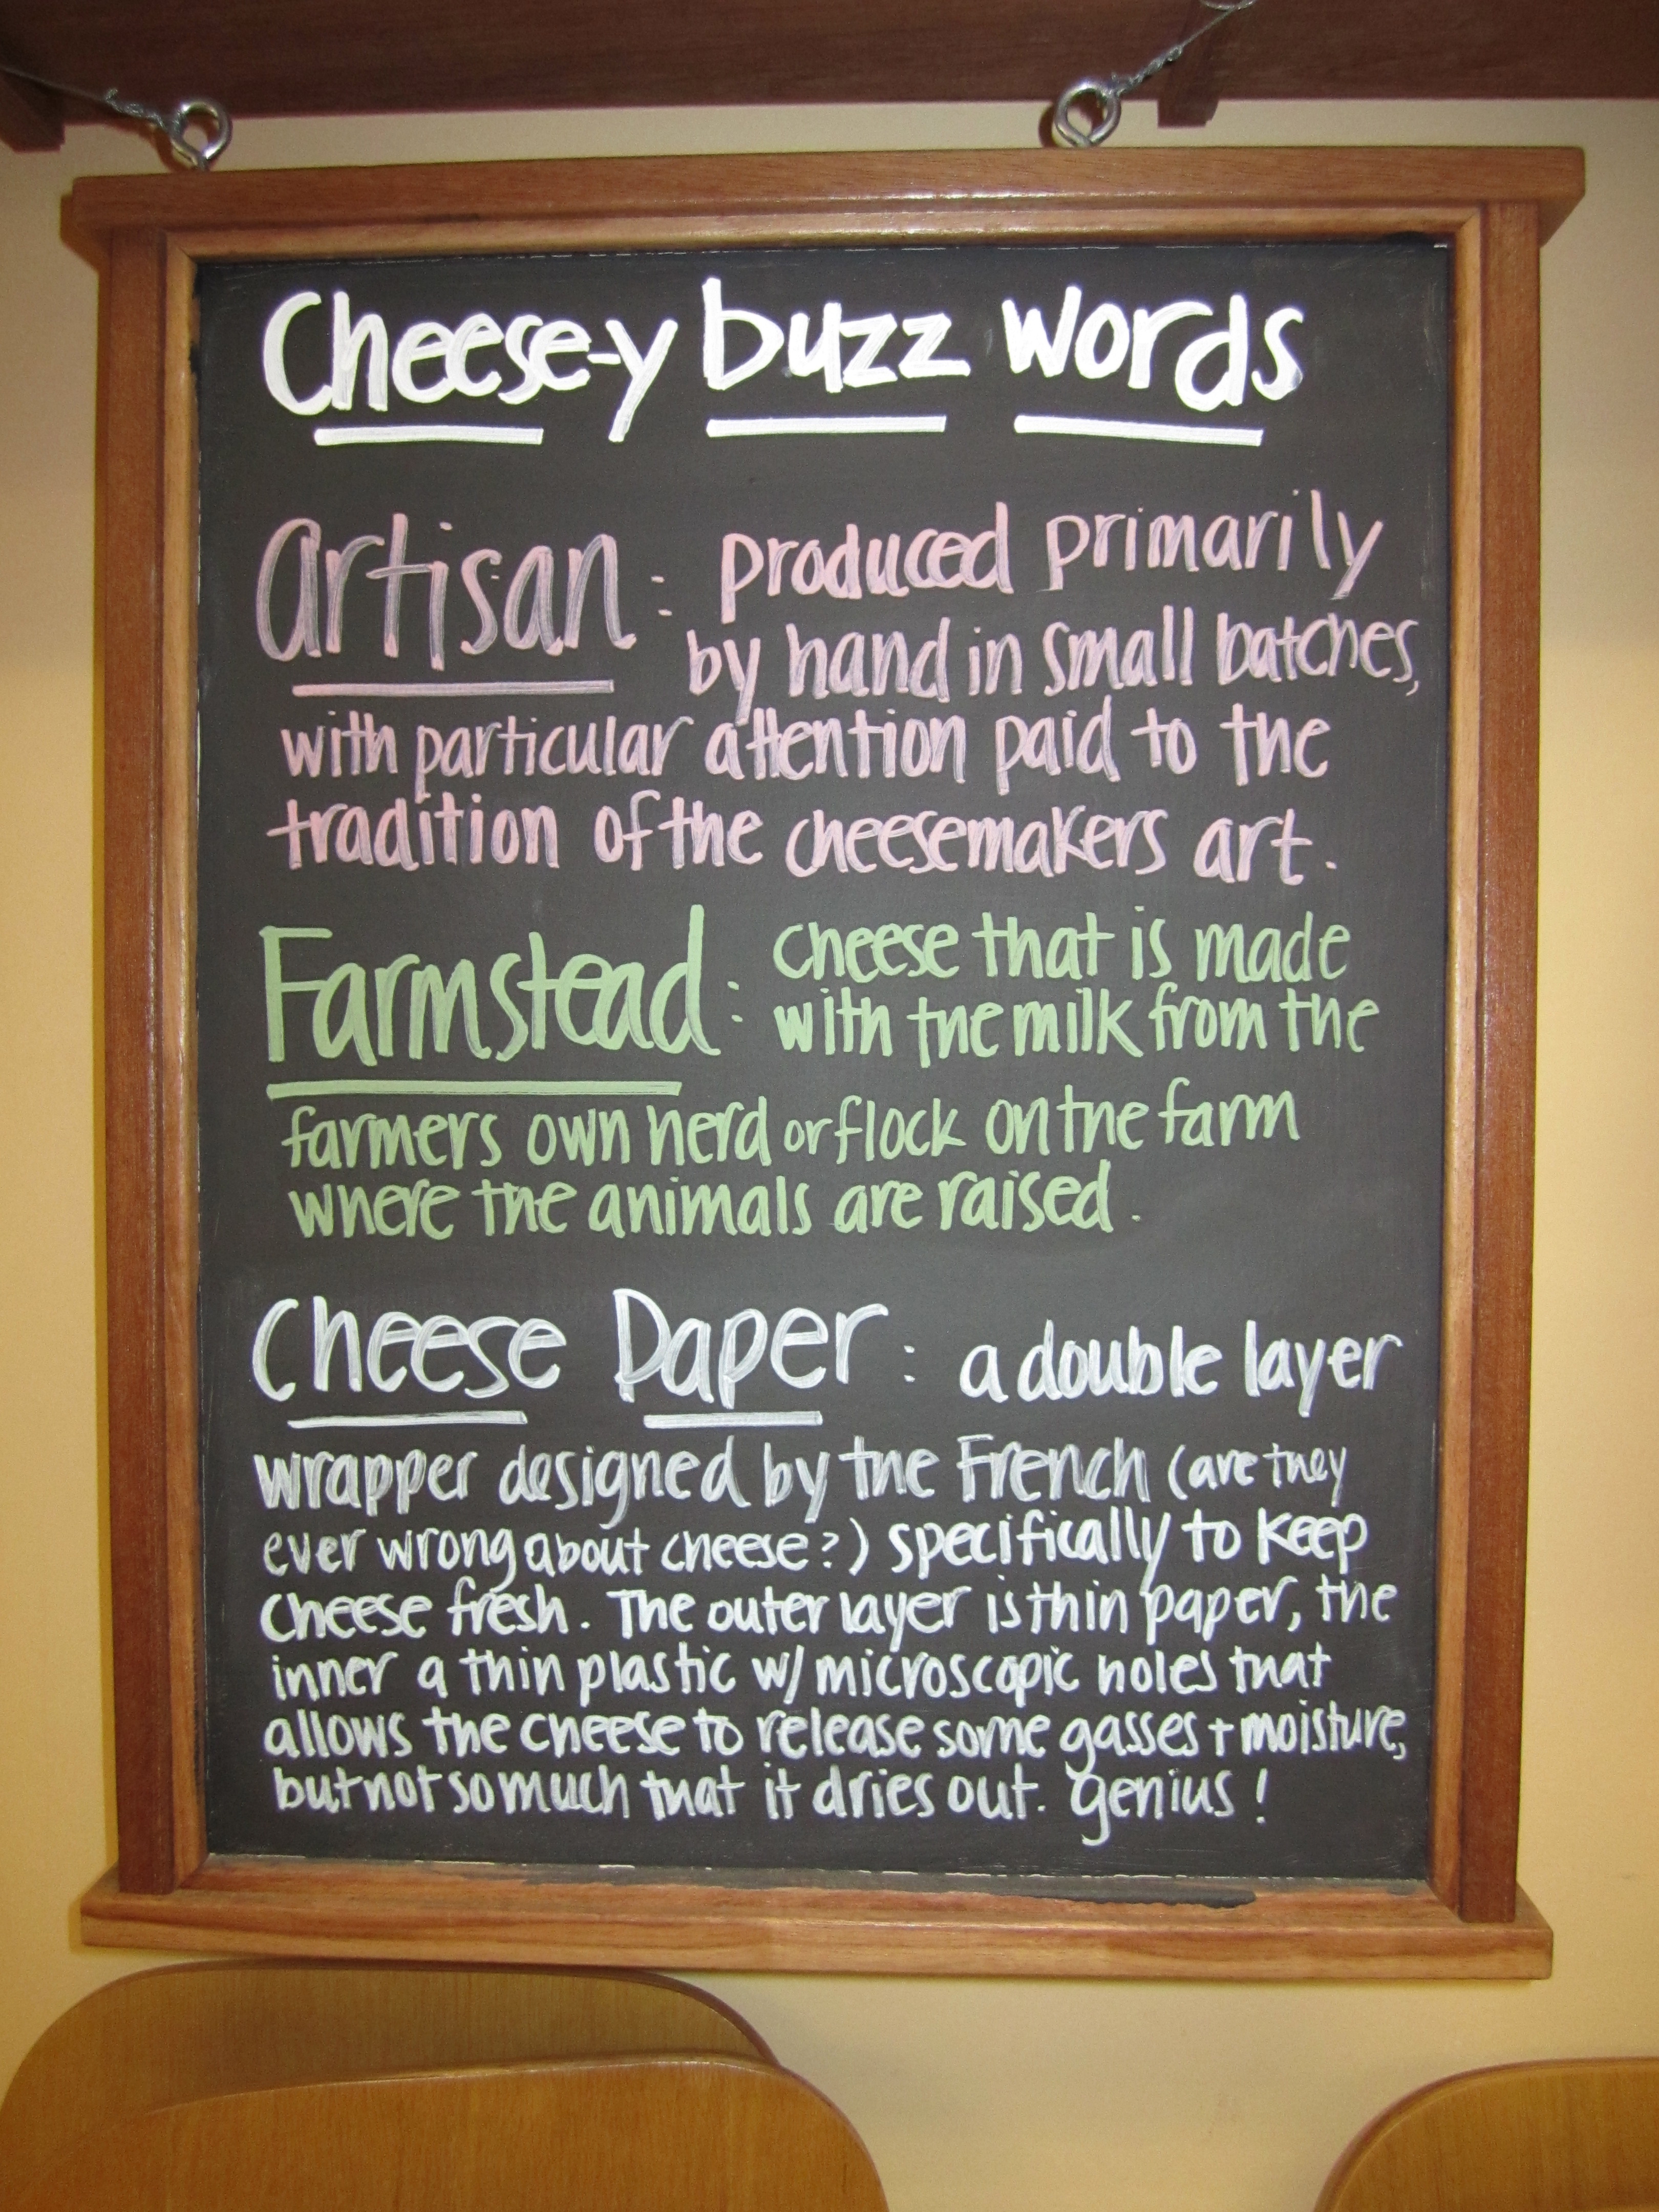 Cheese-y buzz words
Artisan: produced primarily
by hand in small batches,
with particular attention paid to the
tradition of the cheesemakers art.
Farmstead: cheese that is made
with the milk from the
farmers own herd or flock on the farm
where the animals are raised.
Cheese Paper: a double layer
wrapper designed by the French (are they
ever wrong about cheese?) specifically to keep
cheese fresh. The outer layer is thin paper, the
inner a thin plastic w/ microscopic holes that
allows the cheese to release some gasses + moisture,
but not so much that it dries out. genius!